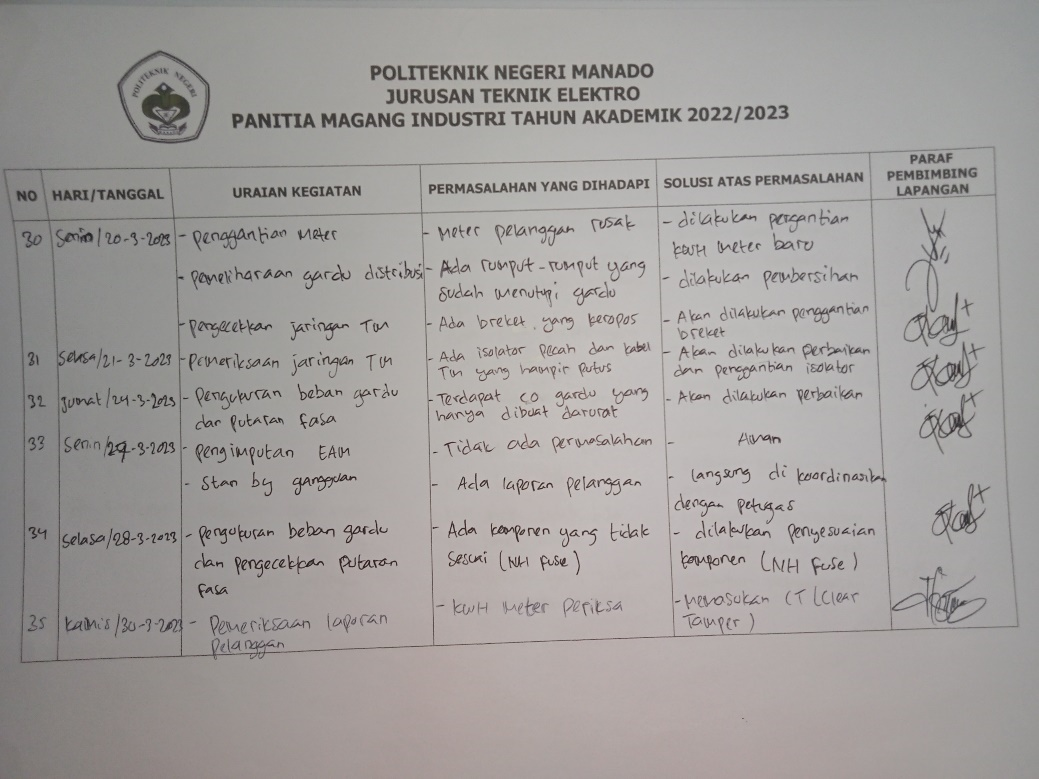 POLITEKNIK NEGERI
POLITEKNIK NEGERI MANADO
JURUSAN TEKNIK ELEKTRO
PANITIA MAGANG INDUSTRI TAHUN AKADEMIK 2022/2023
NO HARI/TANGGAL URAIAN KEGIATAN PERMASALAHAN YANG DIHADAPI SOLUSI ATAS PERMASALAHAN PARAF PEMBIMBING LAPANGAN
30 Senin/20-3-2023 - Penggantian Meter - Meter pelanggan rusak - dilakukan pergantian
kWH meter baru
- Pemeliharaan gardu distribusi - Ada rumput-rumput yang - dilakukan pembersihan
sudah menutupi gardu
- Pengecekkan jaringan TM - Ada breket yang keropos - Akan dilakukan penggantian
breket
31 Selasa/21-3-2023 - Pemeriksaan jaringan TM - Ada isolator pecah dan kabel - Akan dilakukan perbaikan
TM yang hampir putus dan penggantian isolator
32 Jumat/24-3-2023 - Pengukuran beban gardu - Terdapat CO gardu yang - Akan dilakukan perbaikan
dan Putaran fasa hanya dibuat darurat
33 Senin/27-3-2023 - Pengimputan EAM - Tidak ada permasalahan - Aman
- Stan by gangguan - Ada laporan pelanggan - langsung di koordinasikan
dengan petugas
34 Selasa/28-3-2023 - Pengukuran beban gardu - Ada komponen yang tidak - dilakukan penyesuaian
dan pengecekkan putaran sesuai (NH Fuse) komponen (NH Fuse)
fasa
35 Kamis/30-3-2023 - Pemeriksaan laporan - KWH Meter Periksa - Memasukan CT (Clear
pelanggan Tamper)